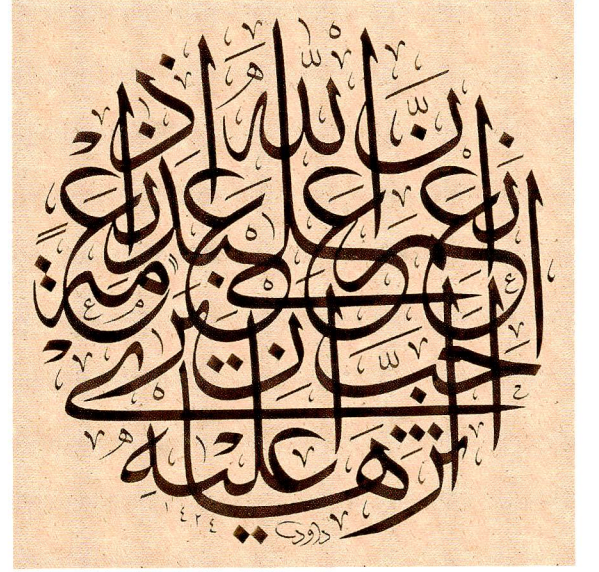 انّ اللّه اذا
انعم على عبد نعمةً
احبّ ان ترى
اثرها عليهِ
داود ١٤٢٤